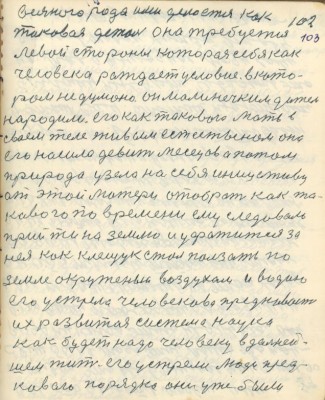 всякого рода они делается как 102
таковая детям она требуется 103
левой стороны которая себя как
человека рождает условие. в кото-
ром не думоно он маминечким дитем
народили. его как такового мать в
своем теле живым естественом она
его насила девить месецов а потом
природа узела на себя инициативу
от этой матери отобрат как та-
кавого по времени ему следовало
прийти на землю и ухватится за
нея как клещук стал ползать по
земле окружены воздухам и водою
его устрела человекова
их развитая система наука
как будет надо человеку в дальней-
шем жит. его устрели люди пред-
кавого порядка они уже были